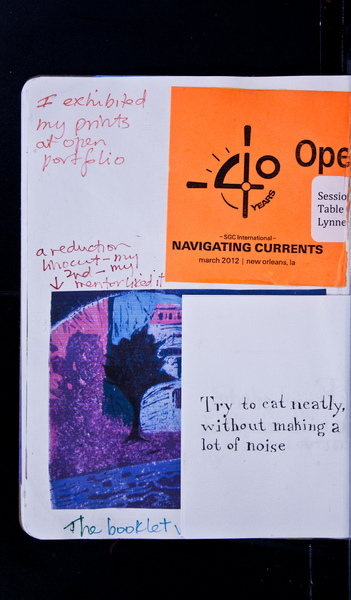 I exhibited
my prints
at open
portfolio
40
YEARS
Ope
Sessio
Table
Lynne
– SGC International –
NAVIGATING CURRENTS
march 2012 | new orleans, la
a reduction
linocut – my
2nd – my
mentor liked it
Try to eat neatly,
without making a
lot of noise
The booklet